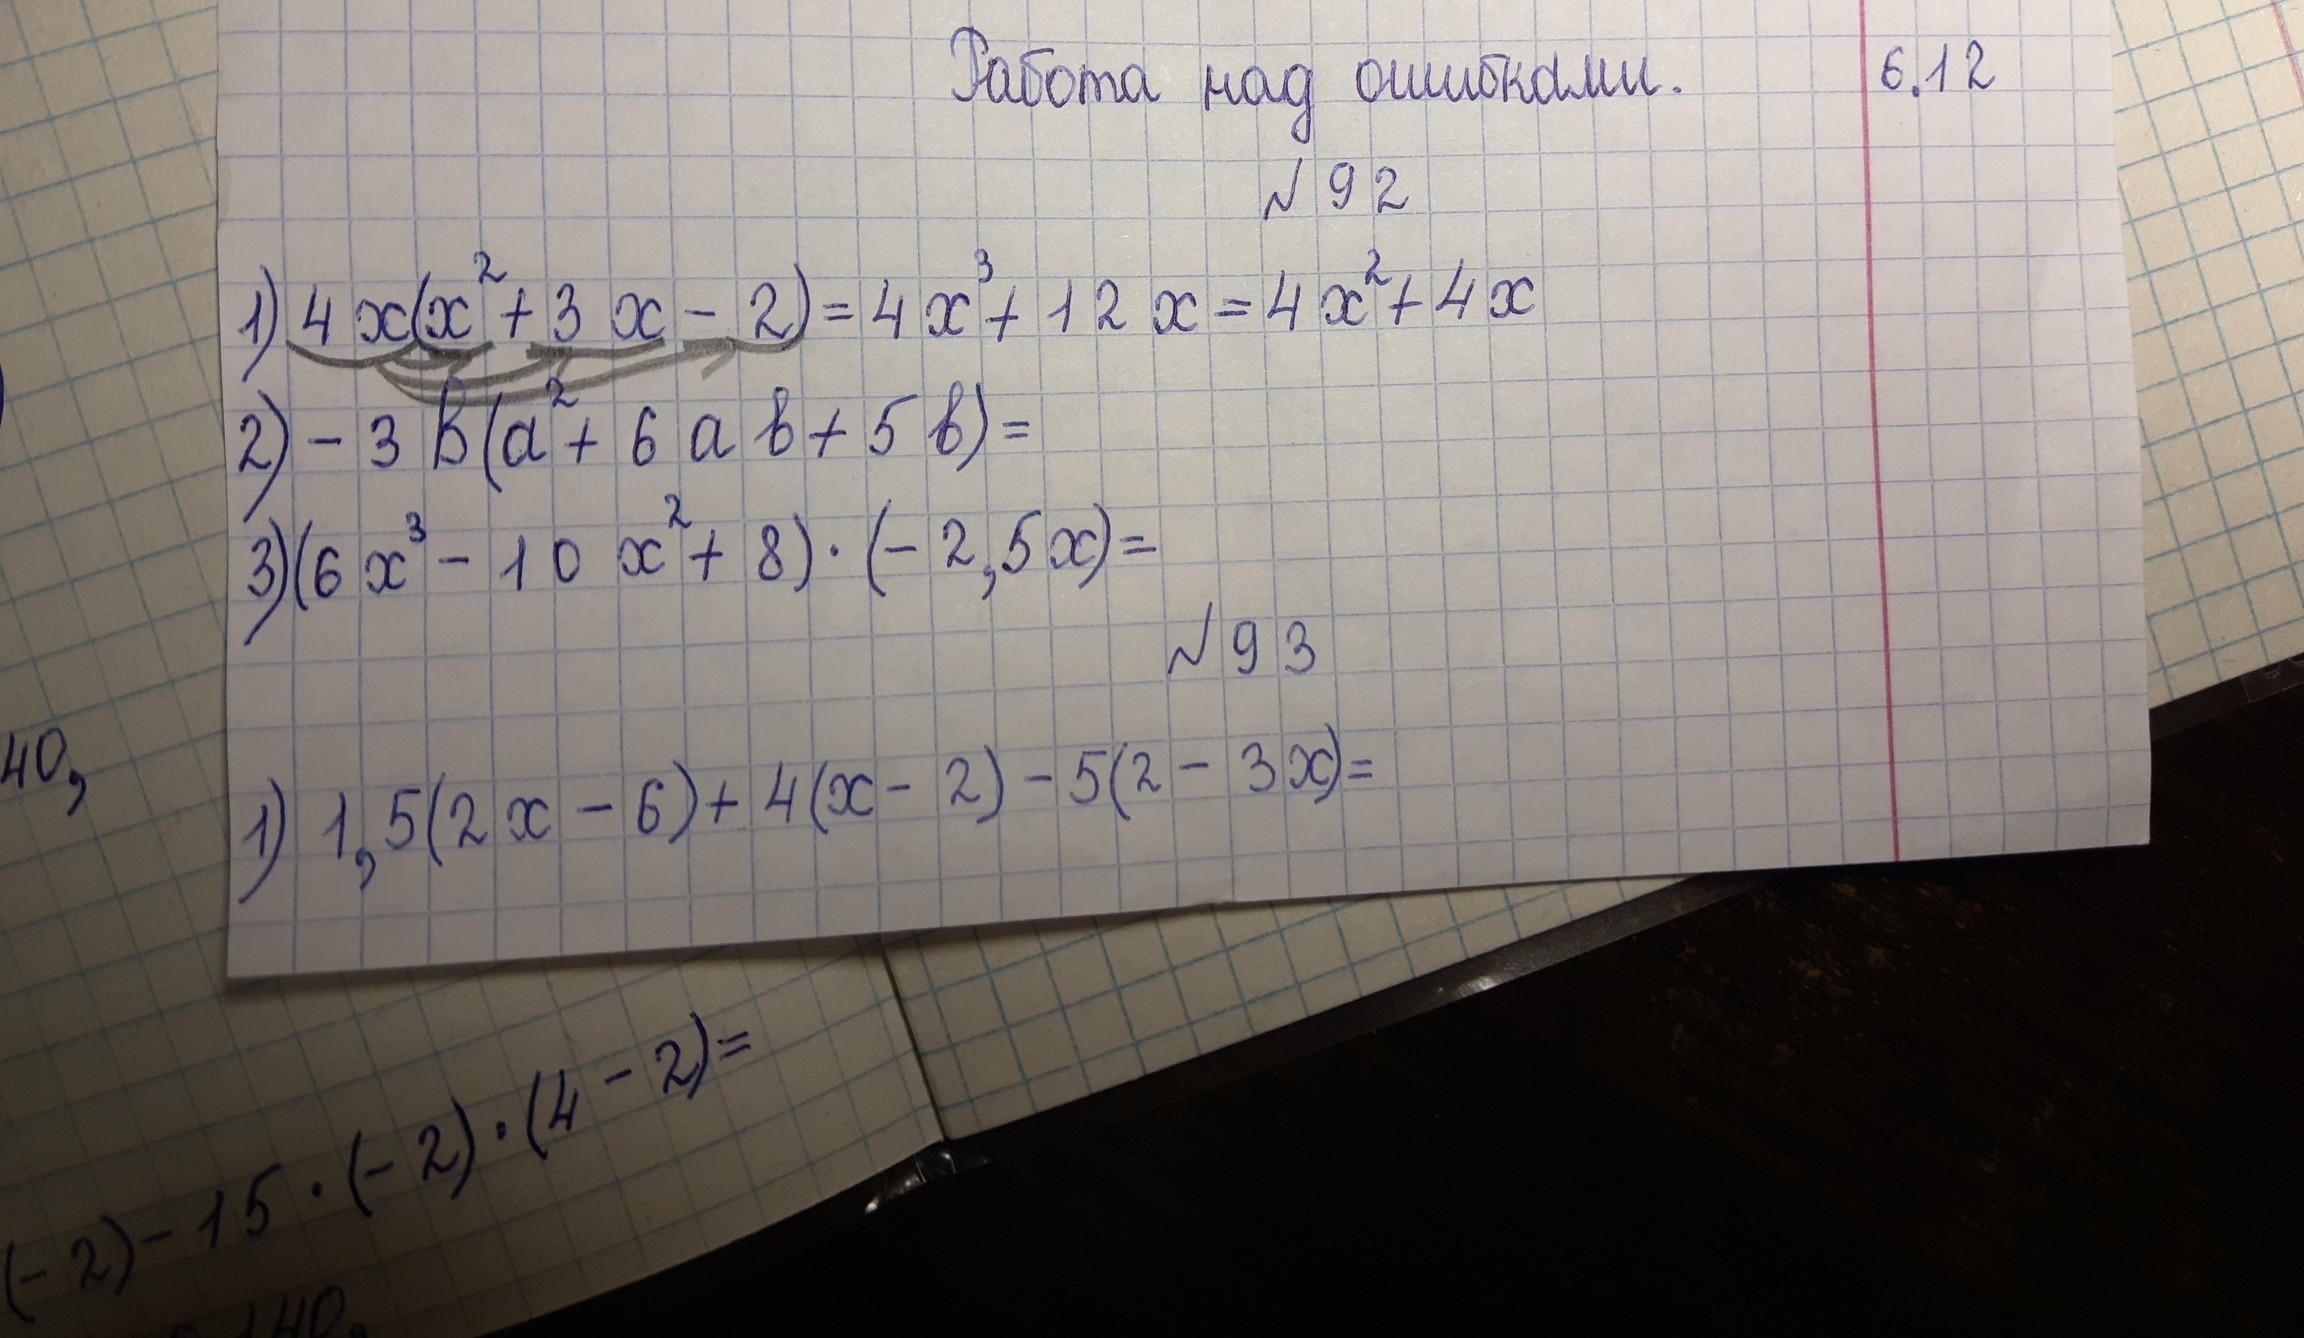 Работа над ошибками. 6.12
№ 92
1) 4x(x²+3x-2)=4x³+12x=4x²+4x
2) -3b(a²+6ab+5b)=
3)(6x³-10x²+8)·(-2,5x)=
№ 93
1) 1,5(2x-6)+4(x-2)-5(2-3x)=
40,
(-2)-15·(-2)·(4-2)=
140,